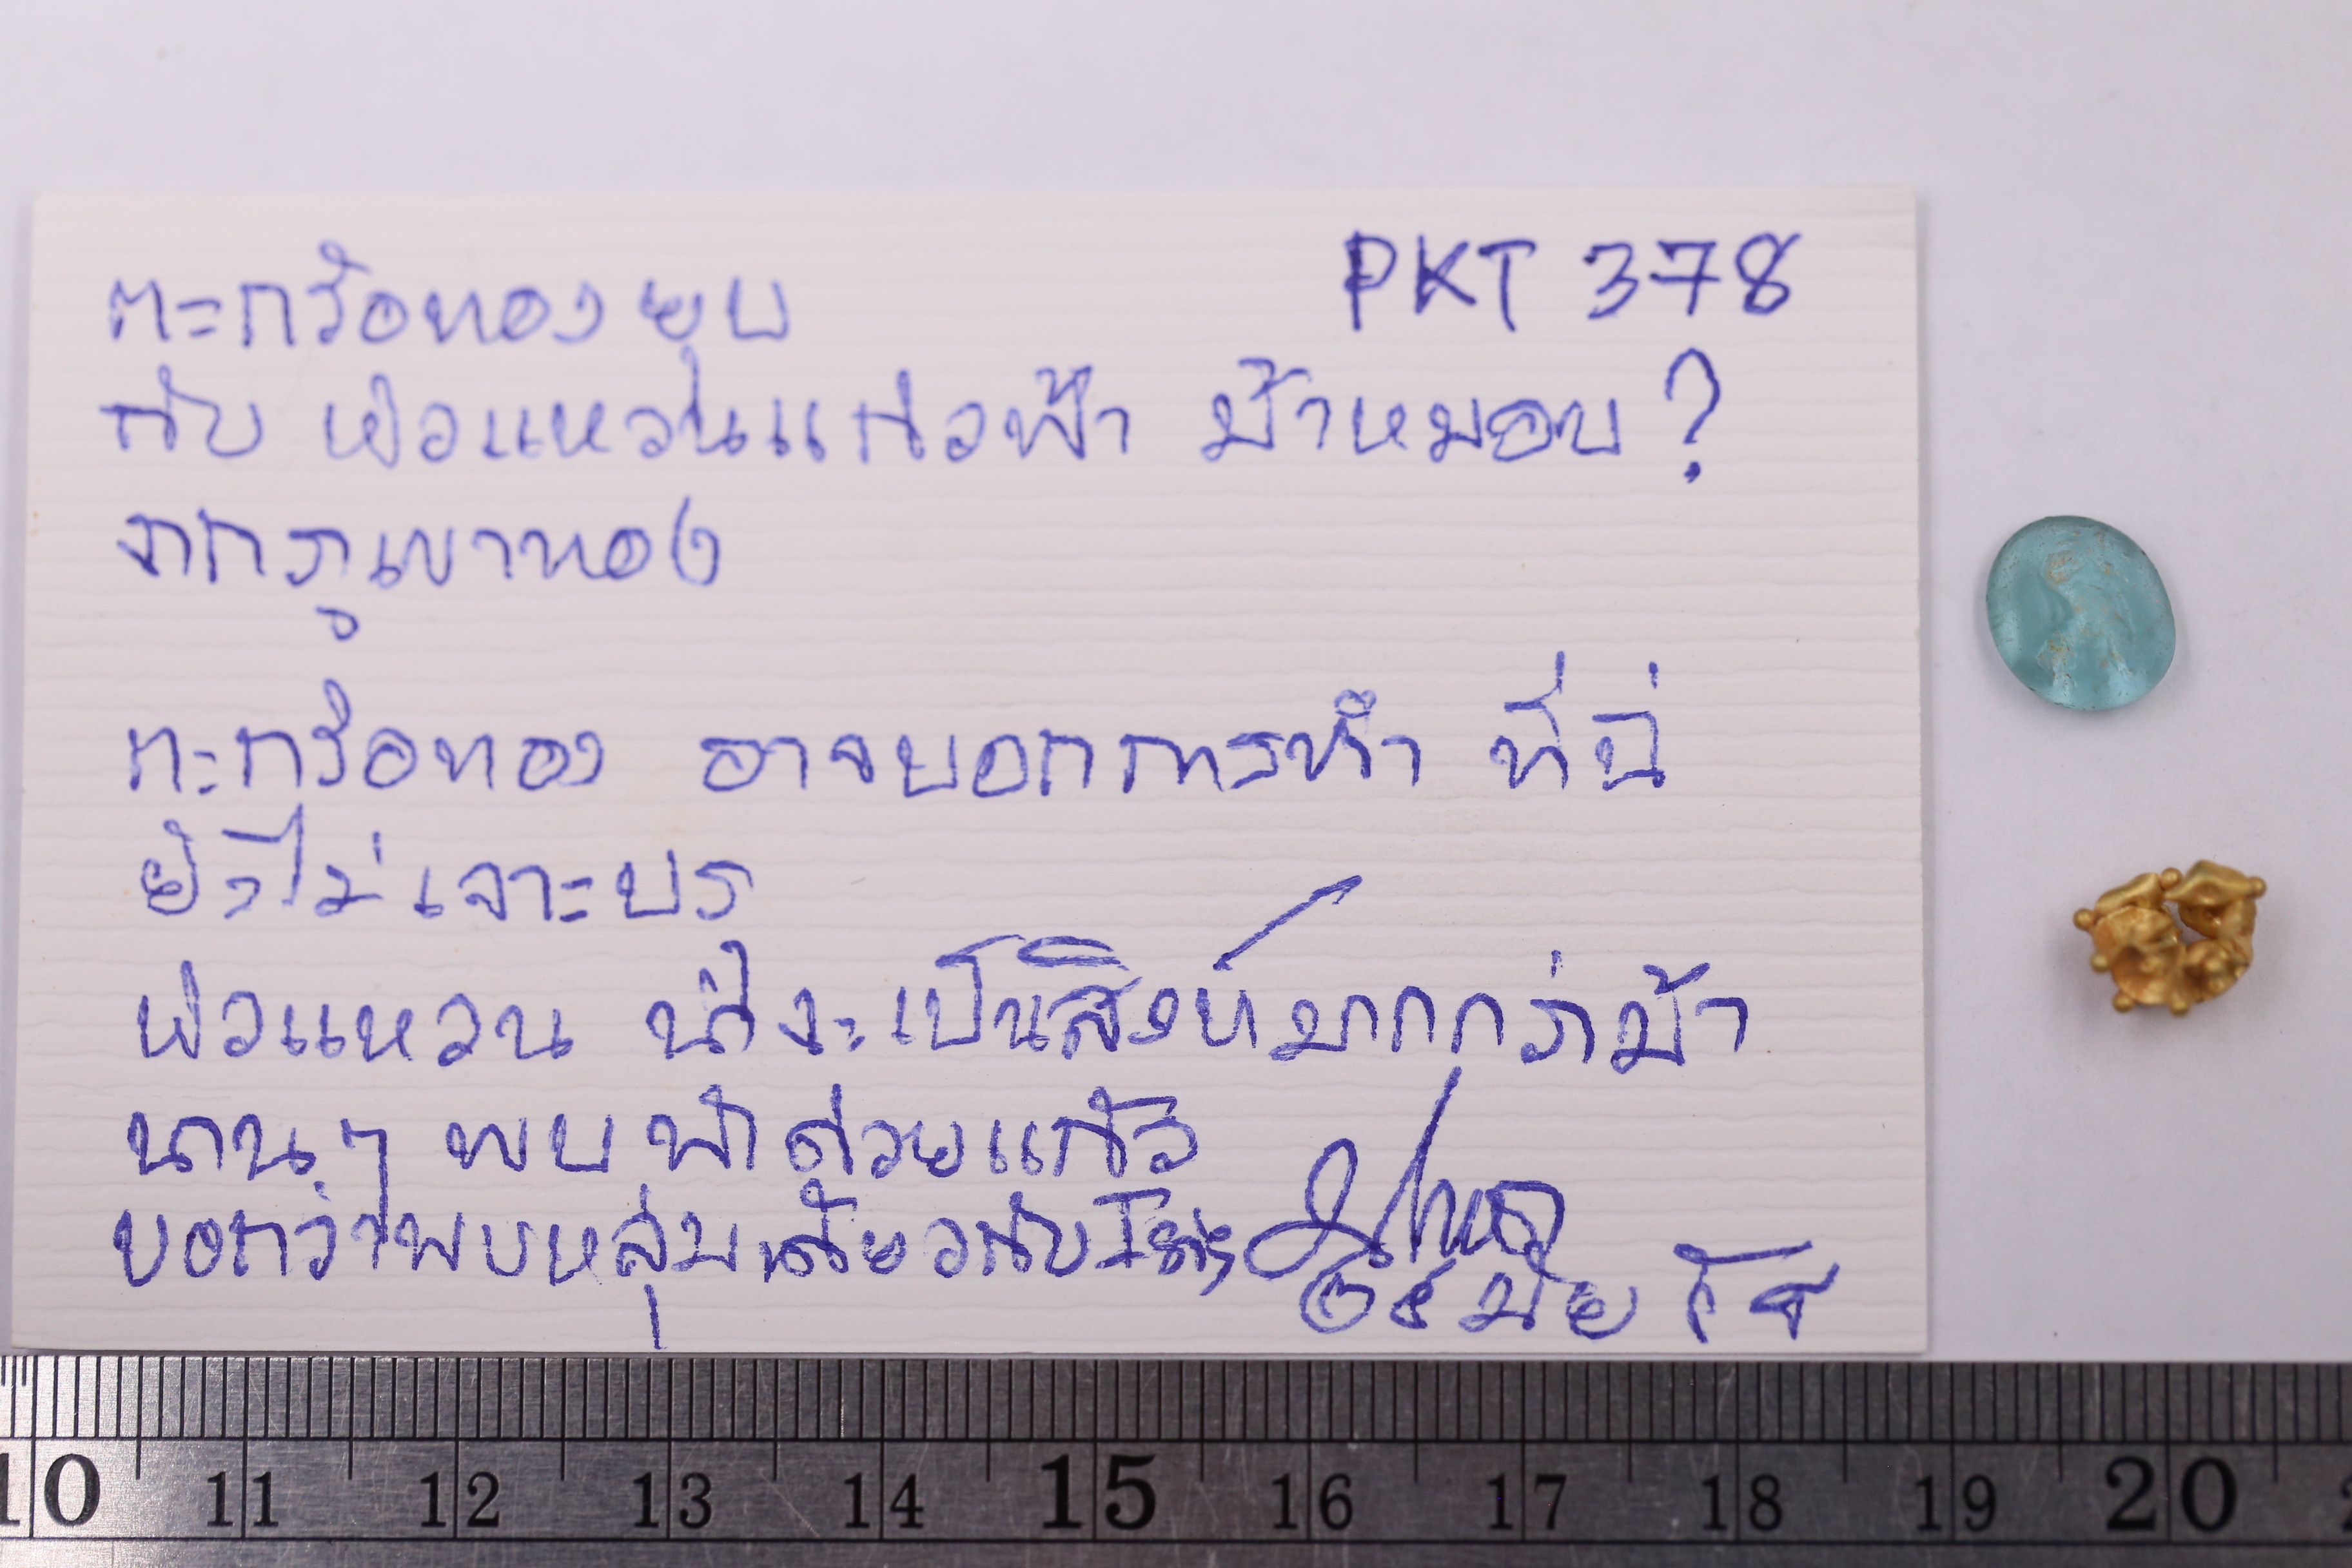 PKT 378
ตะกร้อทองยุบ
กับ หัวแหวนแก้วฟ้า ม้าหมอบ?
จากภูเขาทอง
ตะกร้อทอง อาจบอกการทำ ที่นี่
ยังไม่เจาะปรุ
หัวแหวน น่าจะเป็นสิงห์มากกว่าม้า
นานๆ พบ ทำด้วยแก้ว
บอกว่าพบหลุมเดียวกับ
10 11 12 13 14 15 16 17 18 19 20